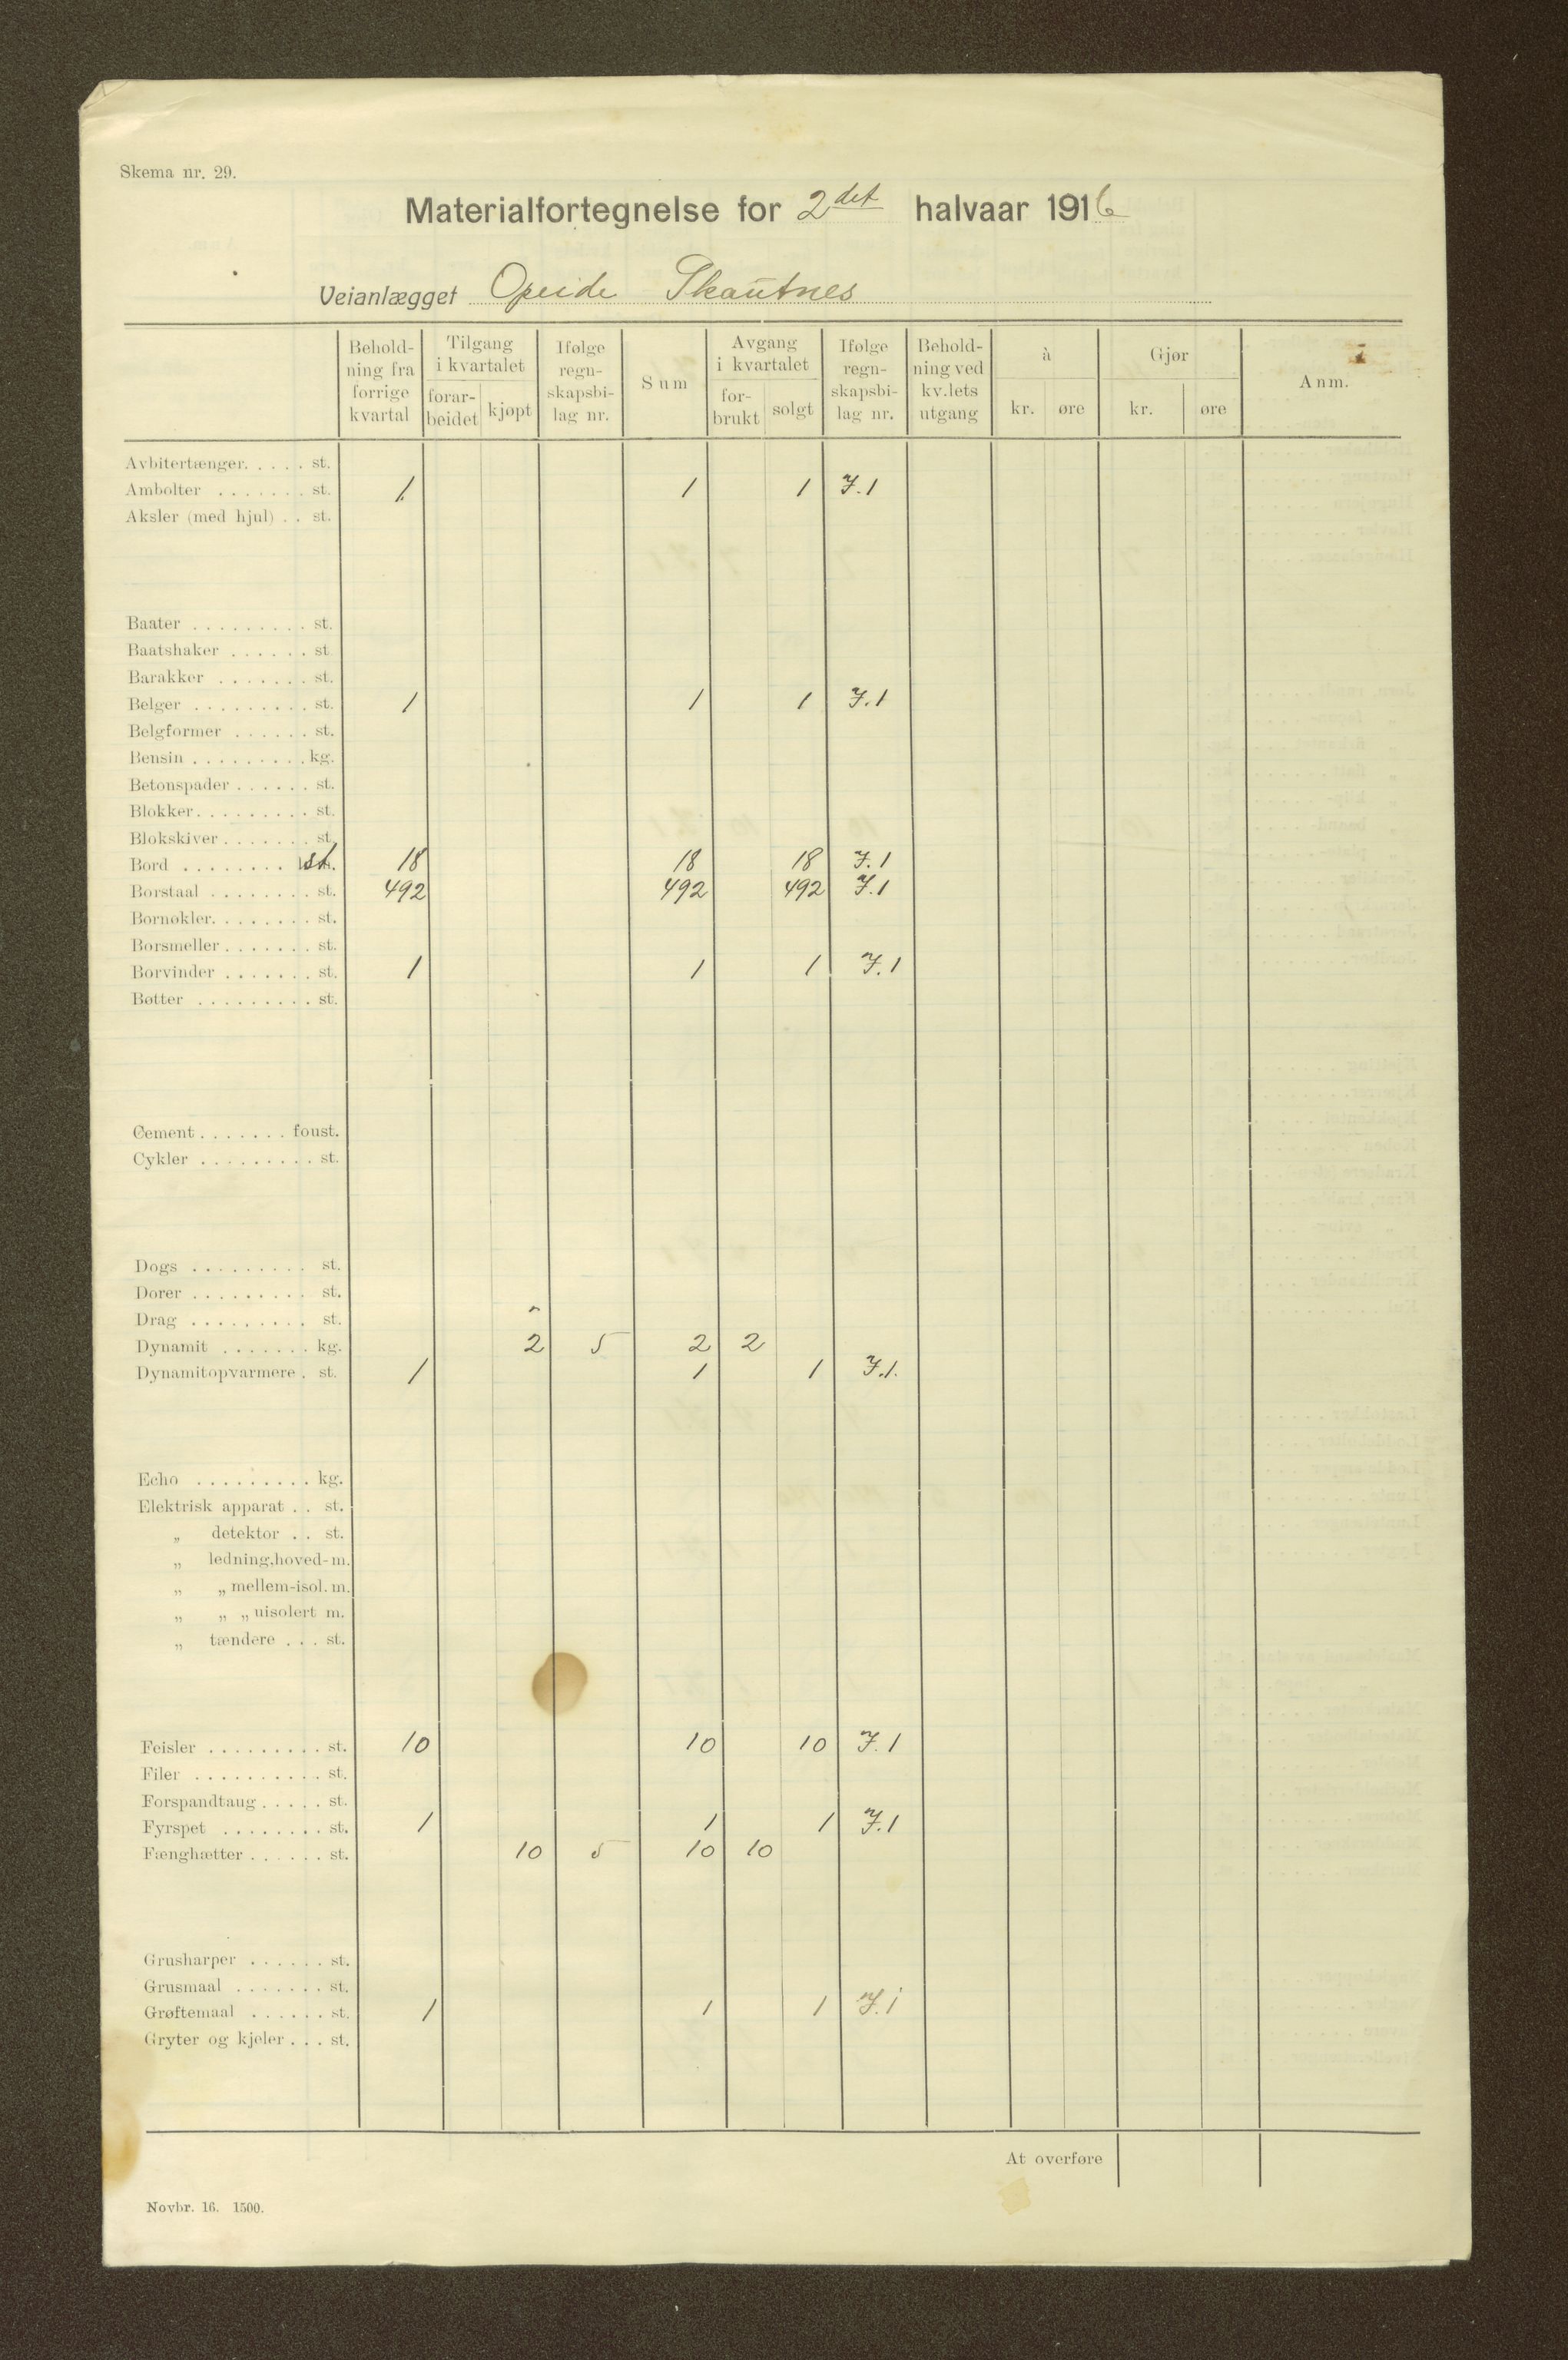 Skema nr. 29.
Materialfortegnelse for 2det halvaar 1916
Veianlægget Opeide Skautnes
Behold-ning fra forrige kvartal | Tilgang i kvartalet forar-beidet kjøpt | Ifølge regn-skapsbi-lag nr. | Sum | Avgang i kvartalet for-brukt solgt | Ifølge regn-skapsbi-lag nr. | Behold-ning ved kv.lets utgang | à kr. øre | Gjør kr. øre | Anm.
Avbitertænger. . . . . st.
Ambolter . . . . . . . st. 1 1 1 J.1
Aksler (med hjul) . . st.
Baater . . . . . . . . . st.
Baatshaker . . . . . . st
Barakker . . . . . . . st.
Belger . . . . . . . . . st. 1 1 1 J.1
Belgformer . . . . . . st.
Bensin . . . . . . . . . kg.
Betonspader . . . . . . st.
Blokker. . . . . . . . . st.
Blokskiver . . . . . . . st.
Bord . . . . . . . . st. 18 18 18 J.1
Borstaal . . . . . . . . st. 492 492 492 J.1
Bornøkler. . . . . . . . st.
Borsmeller . . . . . . . st.
Borvinder . . . . . . . st. 1 1 1 J.1
Bøtter . . . . . . . . . st.
Cement . . . . . . . foust.
Cykler . . . . . . . . . st.
Dogs . . . . . . . . . st.
Dorer . . . . . . . . . st.
Drag . . . . . . . . . st.
Dynamit . . . . . . . kg. 2 5 2 2
Dynamitopvarmere . st. 1 1 1 J.1.
Echo . . . . . . . . . kg.
Elektrisk apparat . . st.
„ detektor . . st.
„ ledning,hoved-m.
„ „ mellem-isol. m.
„ „ „ uisolert m.
„ tændere . . . st.
Feisler . . . . . . . . . st. 10 10 10 J.1
Filer . . . . . . . . . . st.
Forspandtaug . . . . . st.
Fyrspet . . . . . . . . st. 1 1 1 J.1
Fænghætter . . . . . . st. 10 5 10 10
Grusharper . . . . . . st.
Grusmaal . . . . . . . st.
Grøftemaal . . . . . . st. 1 1 1 J.1
Gryter og kjeler . . . st.
At overføre
Novbr. 16. 1500.